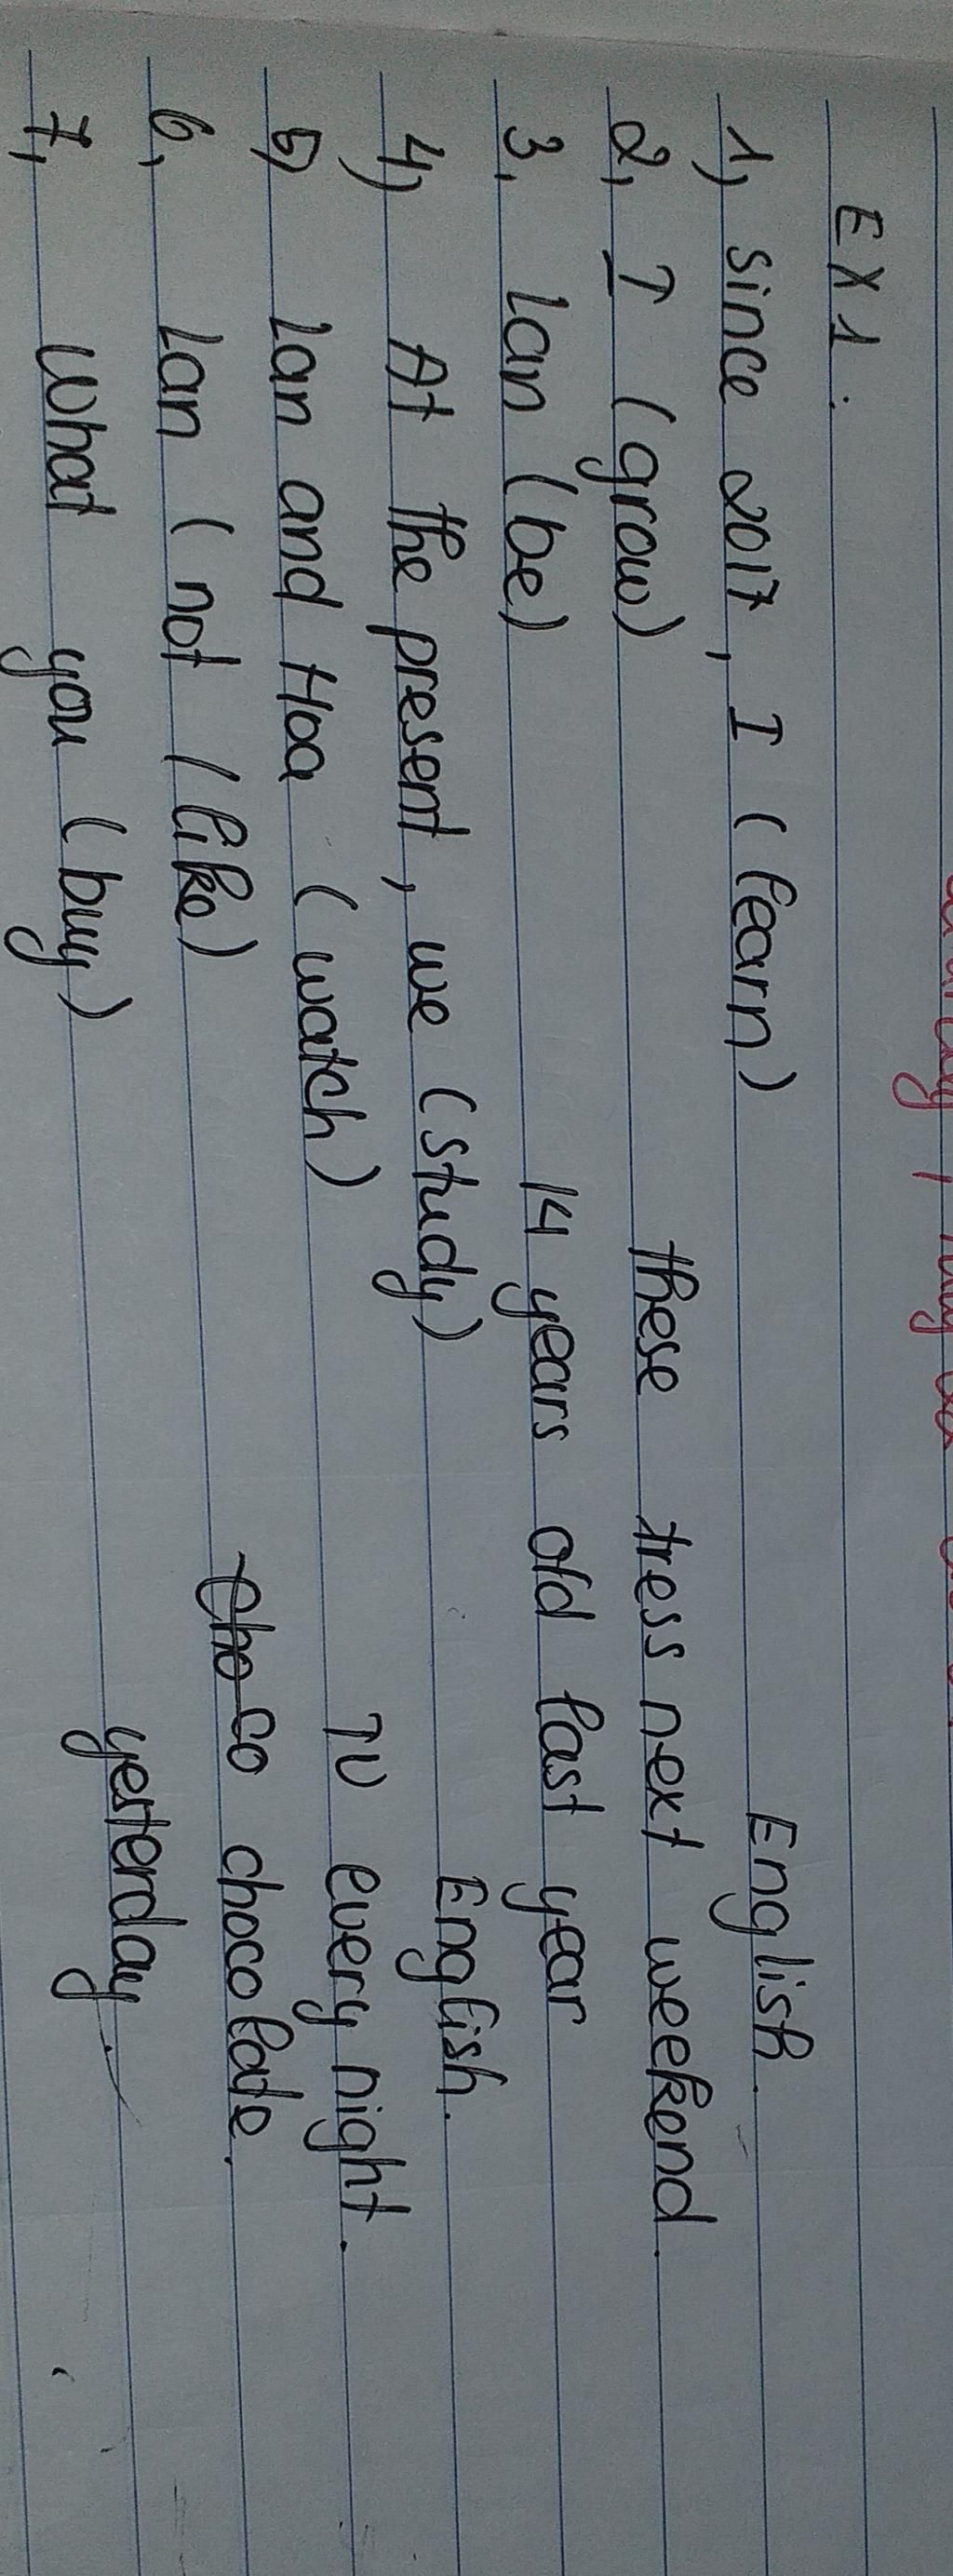 EX1:
1) Since 2017, I (learn) English.
2, I (grow) these tress next weekend.
3, Lan (be) 14 years old last year
4) At the present, we (study) English.
5) Lan and Hoa (watch) TV every night.
6, Lan (not / like) chocolate.
7, What you (buy) yesterday.